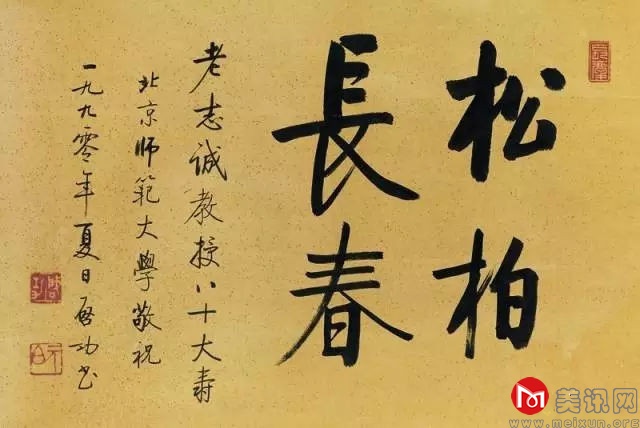 松柏
長春
老志诚教授八十大寿
北京师範大學敬祝
一九九零年夏日启功书
美讯网
www.meixun.org